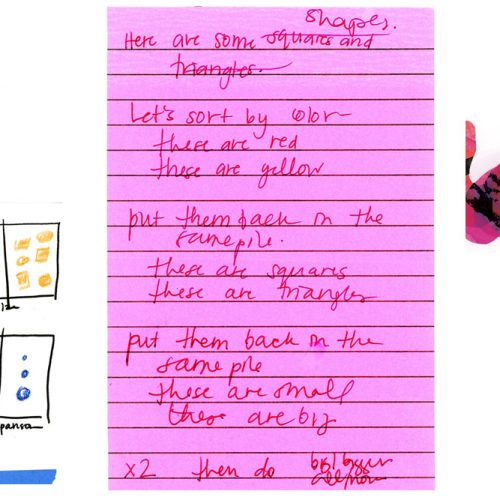 shapes.
Here are some squares and
triangles.
Let's sort by color
these are red
these are yellow
put them back in the
same pile.
these are squares
these are triangles
put them back in the
same pile
these are small
these are big
x2 then do big/bigger